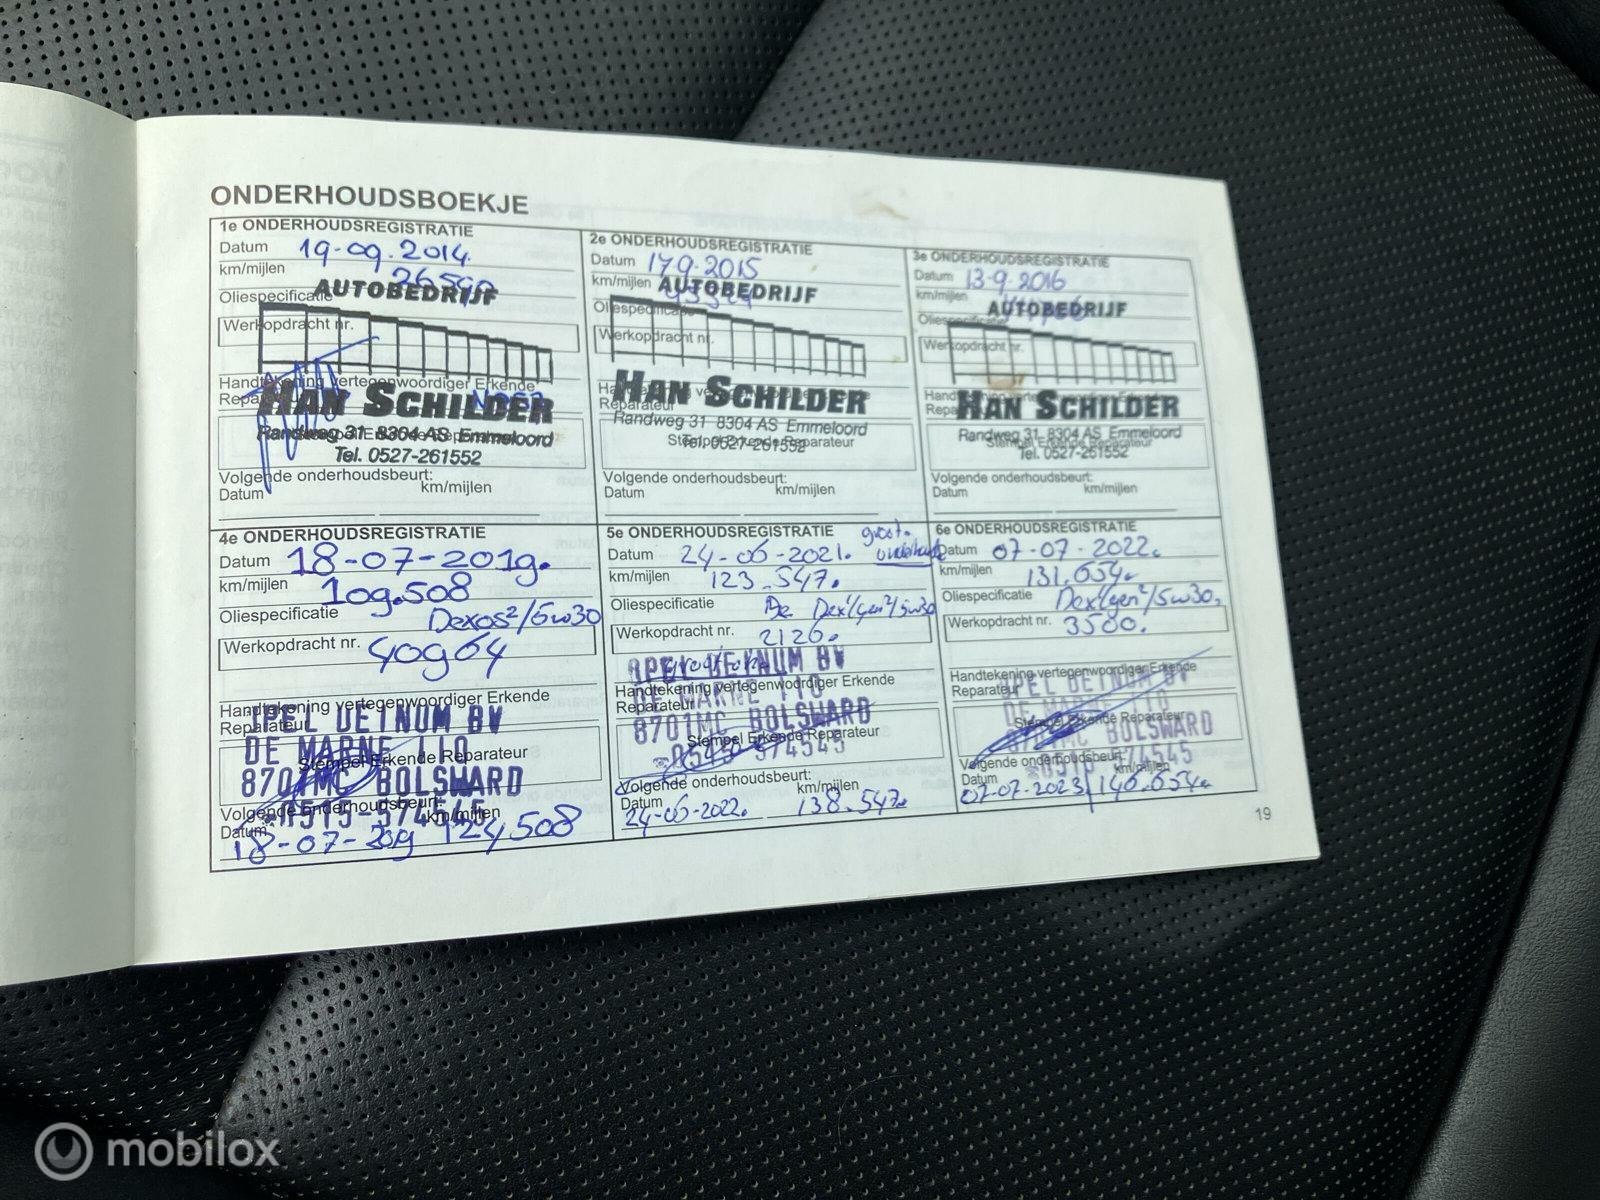 ONDERHOUDSBOEKJE
1e ONDERHOUDSREGISTRATIE
Datum 19-09-2014
km/mijlen 26590
Oliespecificatie
AUTOBEDRIJF
Werkopdracht nr.
Handtekening vertegenwoordiger Erkende
Reparateur
HAN SCHILDER
Randweg 31 8304 AS Emmeloord
Stempel Erkende Reparateur
Tel. 0527-261552
Volgende onderhoudsbeurt:
Datum km/mijlen
2e ONDERHOUDSREGISTRATIE
Datum 17-9-2015
km/mijlen
AUTOBEDRIJF
Oliespecificatie
Werkopdracht nr.
Handtekening vertegenwoordiger Erkende
Reparateur
HAN SCHILDER
Randweg 31 8304 AS Emmeloord
Stempel Erkende Reparateur
Tel. 0527-261552
Volgende onderhoudsbeurt:
Datum km/mijlen
3e ONDERHOUDSREGISTRATIE
Datum 13-9-2016
km/mijlen
AUTOBEDRIJF
Oliespecificatie
Werkopdracht nr.
Handtekening vertegenwoordiger Erkende
Reparateur
HAN SCHILDER
Randweg 31 8304 AS Emmeloord
Stempel Erkende Reparateur
Tel. 0527-261552
Volgende onderhoudsbeurt:
Datum km/mijlen
4e ONDERHOUDSREGISTRATIE
Datum 18-07-2019.
km/mijlen 109.508
Oliespecificatie Dexos²/5w30
Werkopdracht nr. 40964
Handtekening vertegenwoordiger Erkende
Reparateur
OPEL DEINUM BV
DE MARNE 110
Stempel Erkende Reparateur
8701MC BOLSWARD
0515-574545
Volgende onderhoudsbeurt:
Datum km/mijlen
18-07-2019 124508
5e ONDERHOUDSREGISTRATIE groot.
Datum 24-06-2021.
km/mijlen 123.547.
Oliespecificatie Dex¹/gen²/5w30
Werkopdracht nr. 2126.
OPEL DEINUM BV
Handtekening vertegenwoordiger Erkende
Reparateur
DE MARNE 110
8701MC BOLSWARD
Stempel Erkende Reparateur
0515-574545
Volgende onderhoudsbeurt:
Datum km/mijlen
24-06-2022. 138.547.
6e ONDERHOUDSREGISTRATIE
Datum 07-07-2022.
km/mijlen 131.654.
Oliespecificatie Dex¹/gen²/5w30.
Werkopdracht nr. 3500.
Handtekening vertegenwoordiger Erkende
Reparateur
OPEL DEINUM BV
DE MARNE 110
Stempel Erkende Reparateur
8701MC BOLSWARD
0515-574545
Volgende onderhoudsbeurt:
Datum km/mijlen
07-07-2023 140.654.
19
mobilox